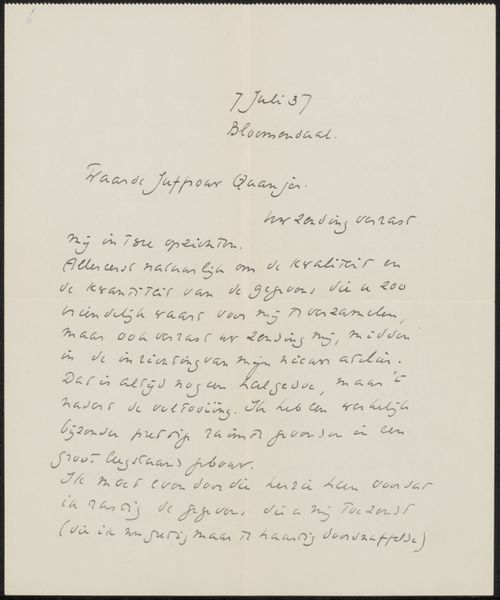 6
7 Juli 37
Bloemendaal.
Waarde Juffrouw Quanjer.
Uw zending verrast
mij in twee opzichten.
Allereerst natuurlijk om de kwaliteit en
de kwantiteit van de gegevens die u zoo
vriendelijk waart voor mij te verzamelen,
maar ook verrast uw zending mij, midden
in de inrichting van mijn nieuwe atelier.
Dat is altijd nog een halfgedoe, maar 't
nadert de voltooiing. Ik heb een werkelijk
bijzonder prettige ruimte gevonden in een
groot leegstaand gebouw.
Ik moet even door die herrie heen voordat
ik rustig de gegevens die u mij toezond
(die ik nu gretig maar te haastig doorsnuffelde)